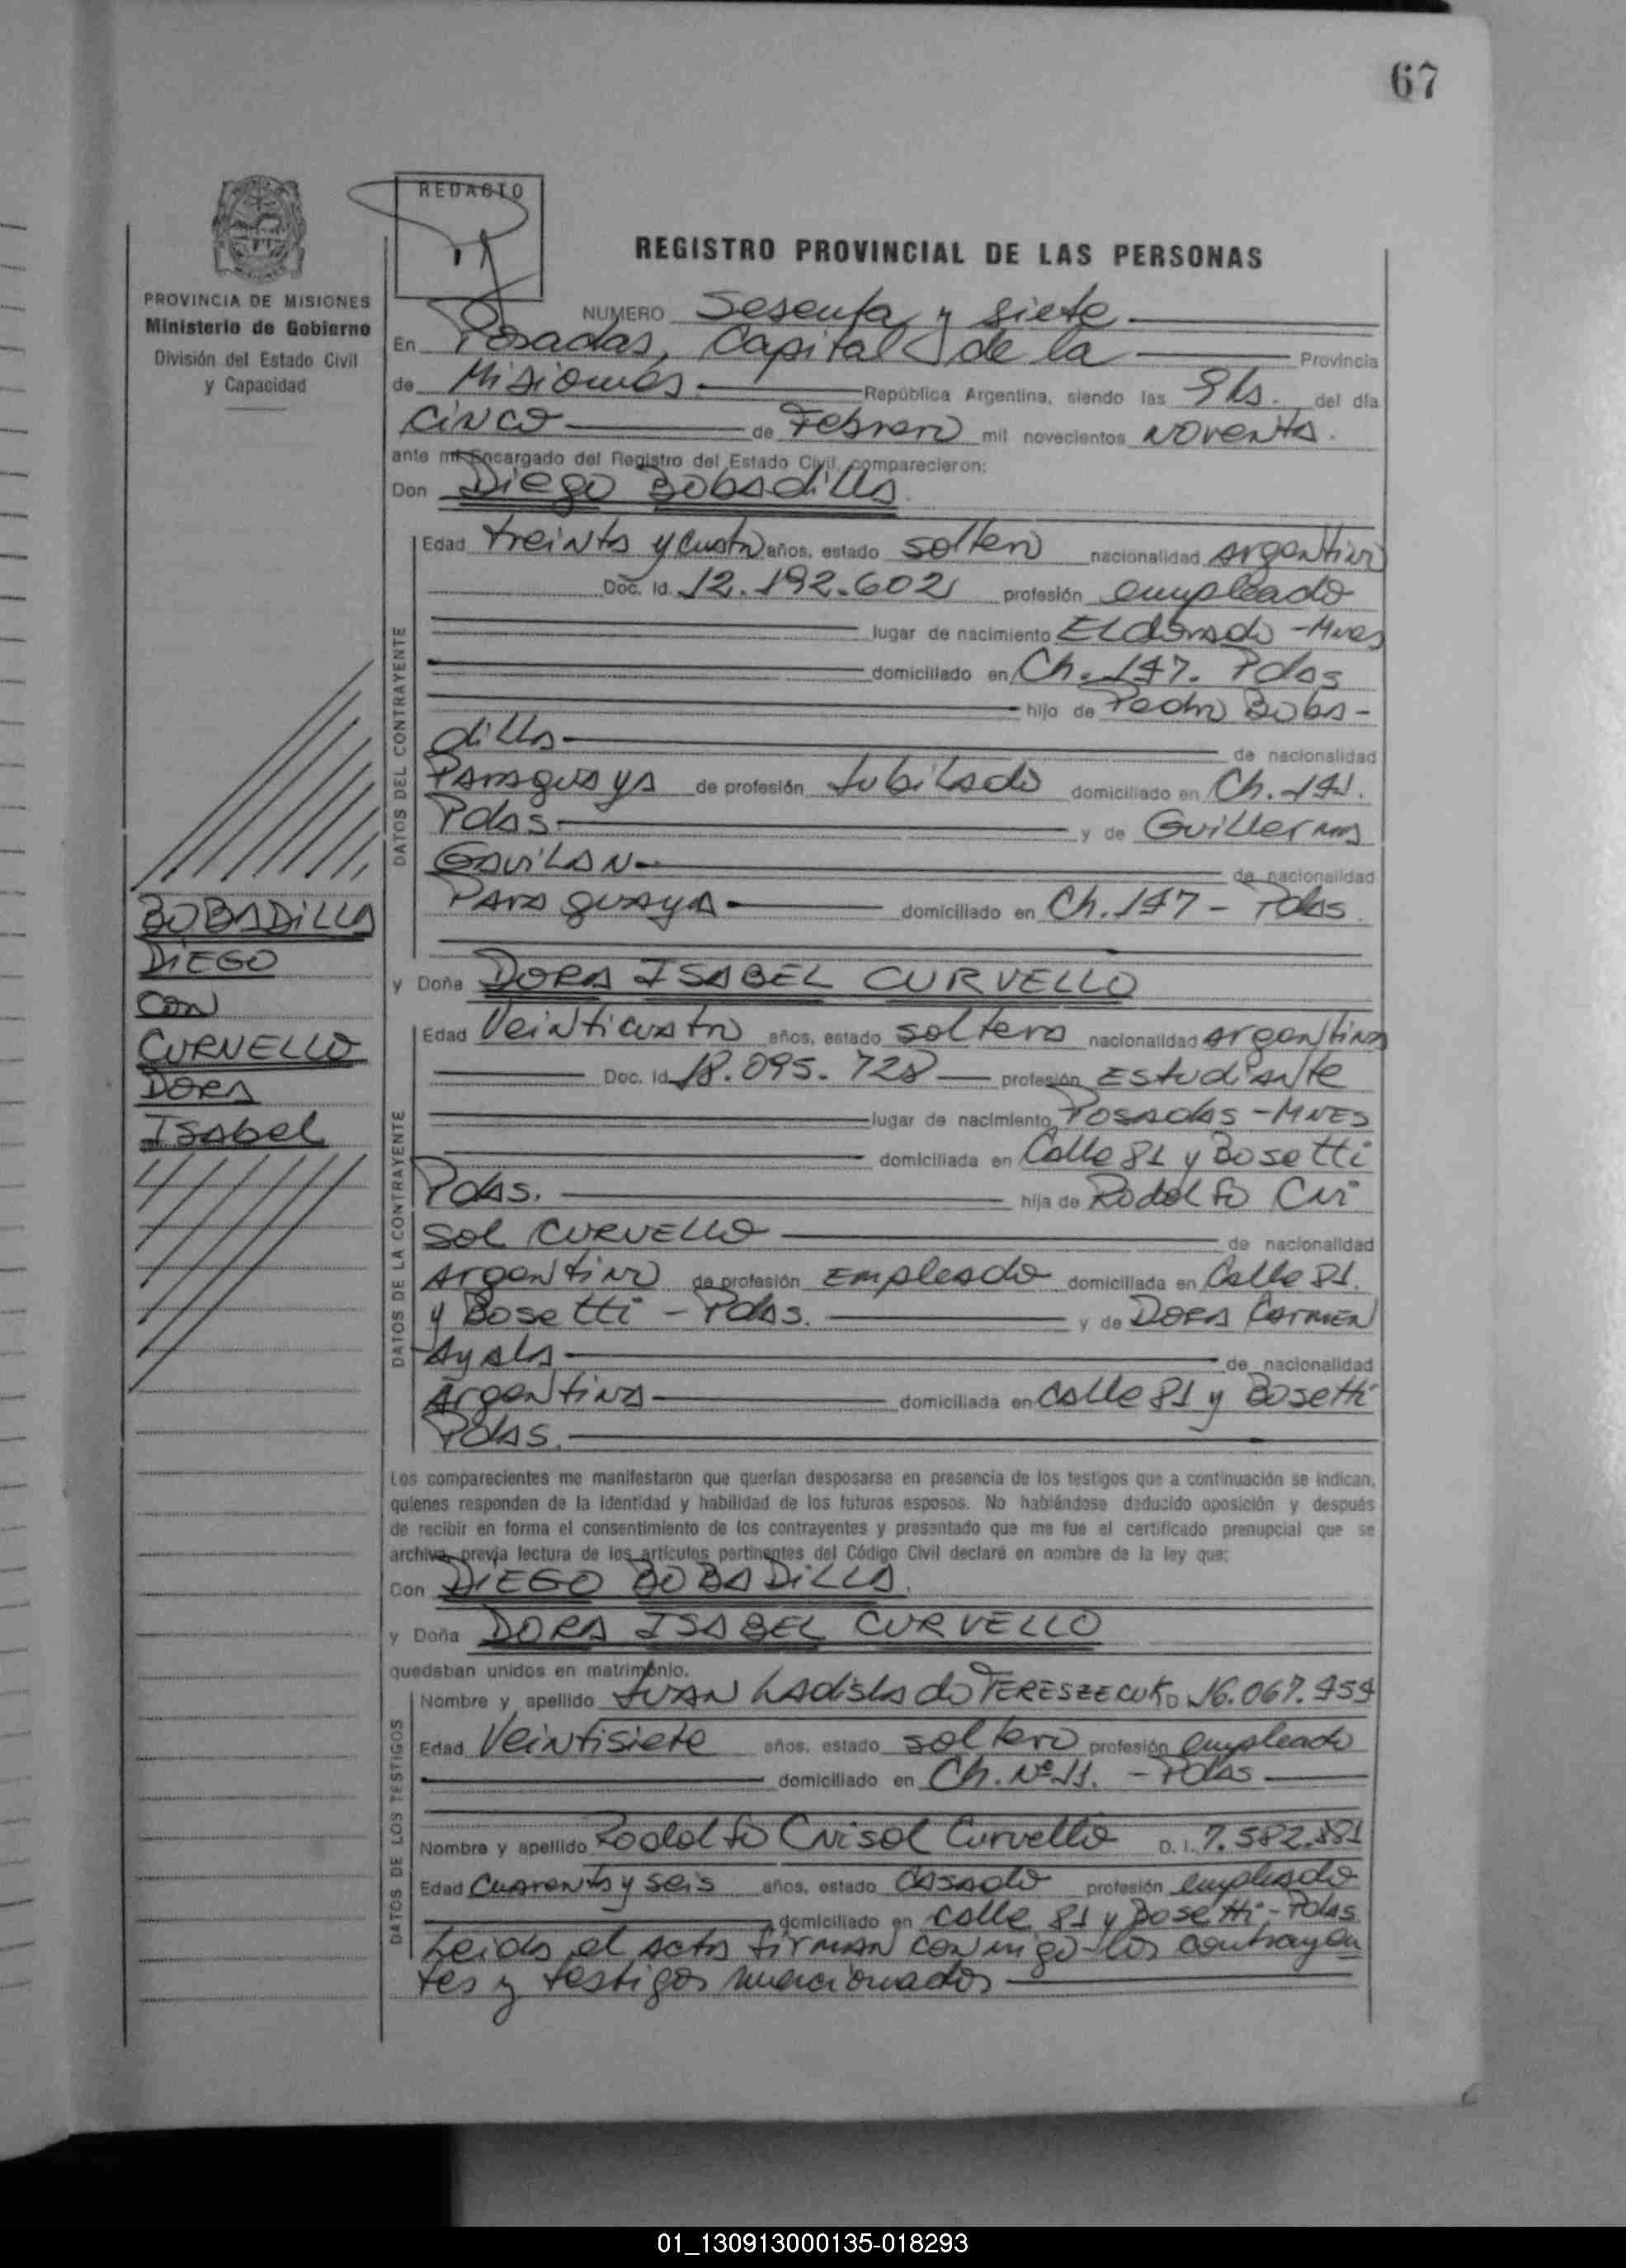 67
REDACTO
REGISTRO PROVINCIAL DE LAS PERSONAS
PROVINCIA DE MISIONES
Ministerio de Gobierno
División del Estado Civil
y Capacidad
NUMERO Sesenta y siete
En Posadas, Capital de la Provincia
de Misiones. República Argentina, siendo las 9 hs. del día
cinco de Febrero mil novecientos noventa.
ante mí Encargado del Registro del Estado Civil, comparecieron:
Don Diego Bobadilla.
DATOS DEL CONTRAYENTE
Edad treinta y cuatro años, estado soltero nacionalidad argentino
Doc. Id. 12.192.602 profesión empleado
lugar de nacimiento Eldorado - Mnes
domiciliado en Ch. 147. Pdas
hijo de Pedro Boba-
dilla de nacionalidad
Paraguaya de profesión Jubilado domiciliado en Ch. 147.
Pdas. y de Guillerma
Gavilan de nacionalidad
Paraguaya domiciliado en Ch. 147 - Pdas.
BOBADILLA
DIEGO
CON
CURVELLO
DORA
ISabel
y Doña DORA ISABEL CURVELLO
DATOS DE LA CONTRAYENTE
Edad Veinticuatro años, estado soltera nacionalidad argentina
Doc. Id. 18.095.728 profesión Estudiante
lugar de nacimiento Posadas - MNES
domiciliada en Calle 81 y Bosetti
Pdas. hija de Rodolfo Cri
sol CURVELLO de nacionalidad
Argentino de profesión Empleado domiciliada en Calle 81.
y Bosetti - Pdas. y de DORA CARMEN
Ayala de nacionalidad
Argentina domiciliada en calle 81 y Bosetti
Pdas.
Los comparecientes me manifestaron que querían desposarse en presencia de los testigos que a continuación se indican,
quienes responden de la identidad y habilidad de los futuros esposos. No habiéndose deducido oposición y después
de recibir en forma el consentimiento de los contrayentes y presentado que me fue el certificado prenupcial que se
archiva previa lectura de los artículos pertinentes del Código Civil declaré en nombre de la ley que:
Don DIEGO BOBADILLA.
y Doña DORA ISABEL CURVELLO
quedaban unidos en matrimonio.
DATOS DE LOS TESTIGOS
Nombre y apellido JUAN Ladislado 16.067.454
Edad Veintisiete años, estado soltero profesión empleado
domiciliado en Ch. Nº 11. - Pdas
Nombre y apellido Rodolfo Crisol Curvello D. I. 7.582.881
Edad Cuarenta y seis años, estado casado profesión empleado
domiciliado en calle 81 y Bosetti - Pdas.
Leida el acta firman conmigo los contrayen
tes y testigos mencionados
01_130913000135-018293